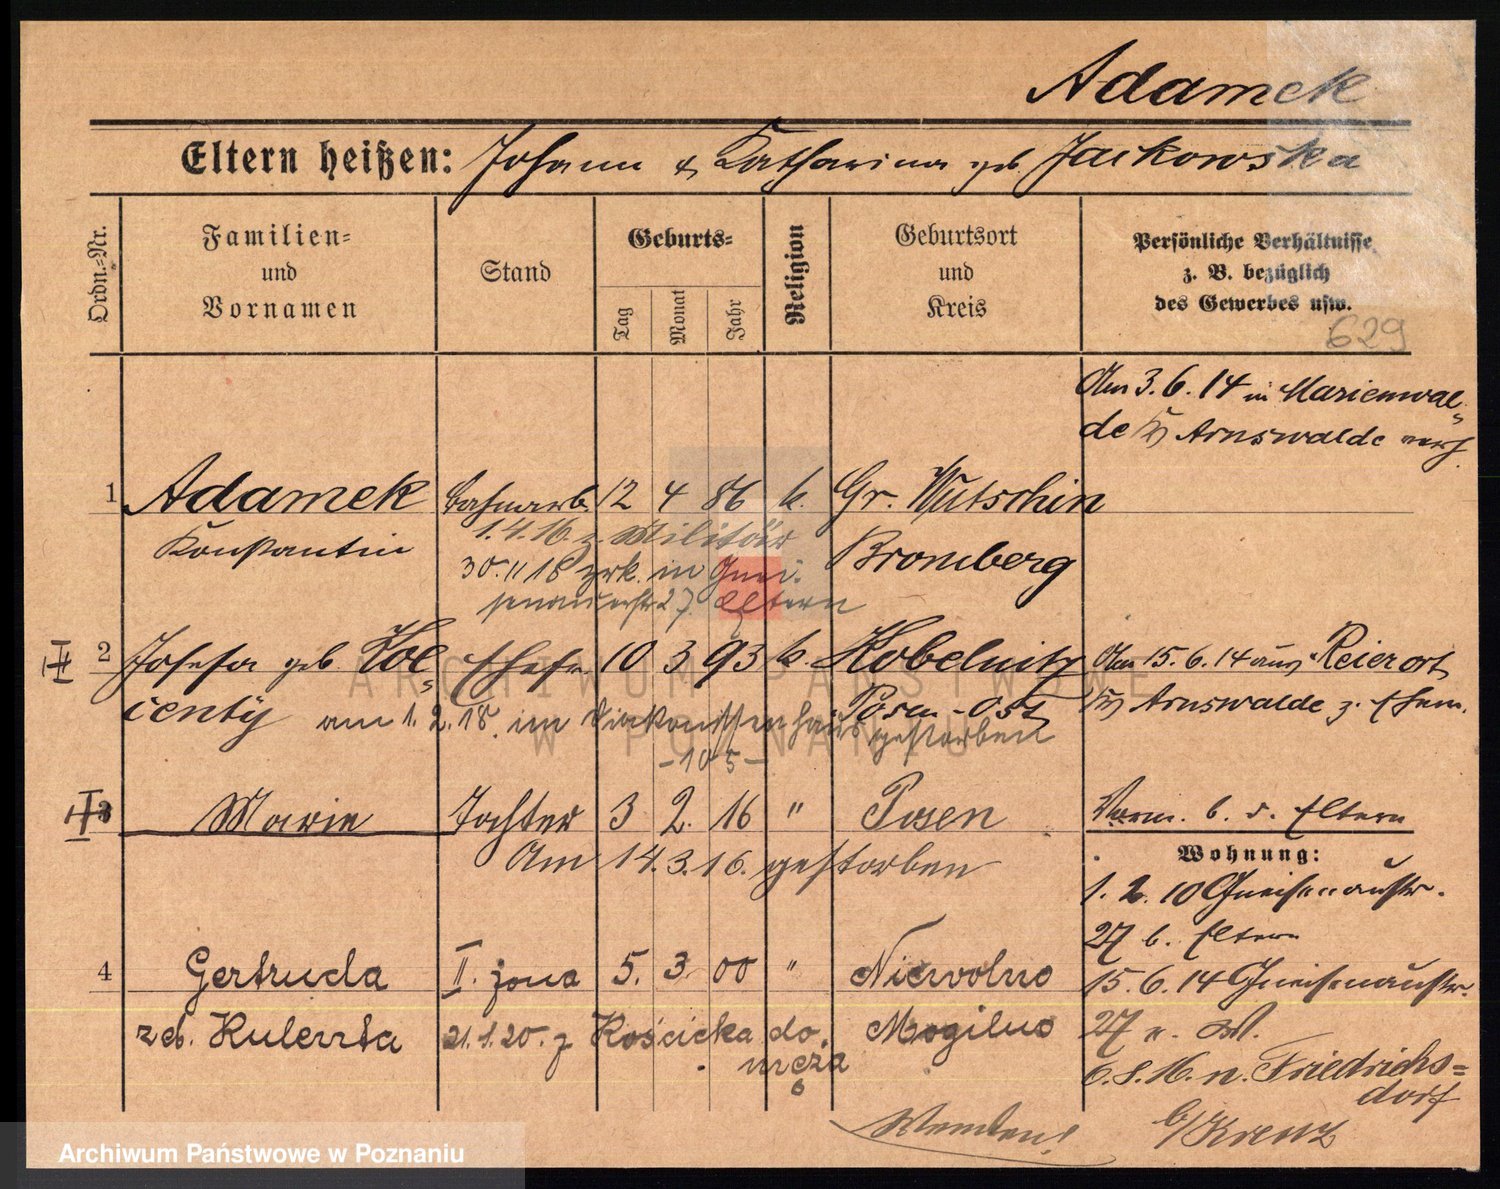 Adamek
Eltern heißen: Johann & Katharina geb. Jackowska
Ordn.-Nr.
Familien- und Vornamen
Stand
Geburts-
Tag
Monat
Jahr
Religion
Geburtsort und Kreis
Persönliche Verhältnisse z. B. bezüglich des Gewerbes usw.
629
Am 3.6.14 in Marienwal-
de Kr Arnswalde verh.
1 Adamek Bahnarb. 12 4 86 k. Gr. Wutschin
Konstantin Bromberg
1.4.16 z. Militär
30.11 18 zrk. in Gnei-
senaustr 27 Eltern
II 2 Josefa geb. Koc- Ehefr. 10 3 93 k. Kobelnitz Am 15.6.14 aus Reierort
ienty Posen-Ost Kr Arnswalde z. Ehem.
am 1.2.18. im Diakonissenhaus gestorben
-105-
3 Marie Tochter 3 2. 16 " Posen Vorm. b. d. Eltern
Am 14.3.16. gestorben
Wohnung:
1. 2. 10 Gneisenaustr.
27 b. Eltern
4 Gertruda II. żona 5. 3. 00 " Niewolno 15.6.14 Gneisenaustr.
zd. 21.1.20. z Kościeka do Mogilno 27 n. W.
męża
6.8.16. n. Friedrichs-
dorf
b/Kreuz
Wenden!
ARCHIWUM PAŃSTWOWE
W POZNANIU
Archiwum Państwowe w Poznaniu